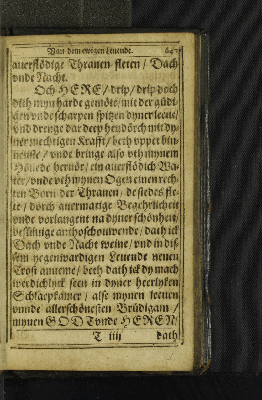 Van dem ewigen Leuende.
auerflödige Thranen fleten / Dach
vnde Nacht.
Och HERE / drip / drip doch
dith myn harde gemöte / mit der güdi-
gen vnde scharpen spitzen dyner leeue /
vnd drenge dar deep hendörch mit dy-
ner mechtigen Krafft / beth vpper bin-
neuste / vnde bringe also vth mynem
Höuede hervör / ein auerflödich Wa-
ter / vnde vth mynen Ogen einen rech-
ten Born der Thranen / de stedes fle-
te / dörch auermatige Begehrlicheit
vnde vorlangent na dyner schönheit /
beslitlige anthoschouwende / dath ick
Dach vnde Nacht weine / vnd in dis-
sem yegenwardigen Leuende nenen
Trost anneme / beth dath ick dy mach
werdichlyck seen in dyner heerlyken
Schlaepkamer / alse mynen leeuen
vnnde allerschönesten Brüdigam /
mynen GOD Tvnde HEREN /
T iiij dath